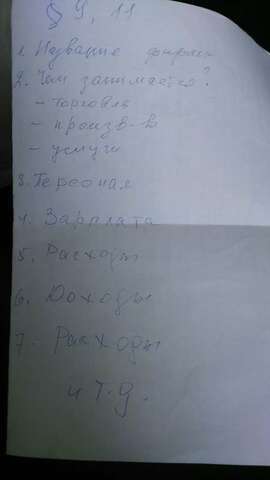 § 9, 11
1. Название фирмы
2. Чем занимается?
- торговля
- произв-в
- услуги
3. Персонал
4. Зарплата
5. Расходы
6. Доходы
7. Расходы
и т.д.